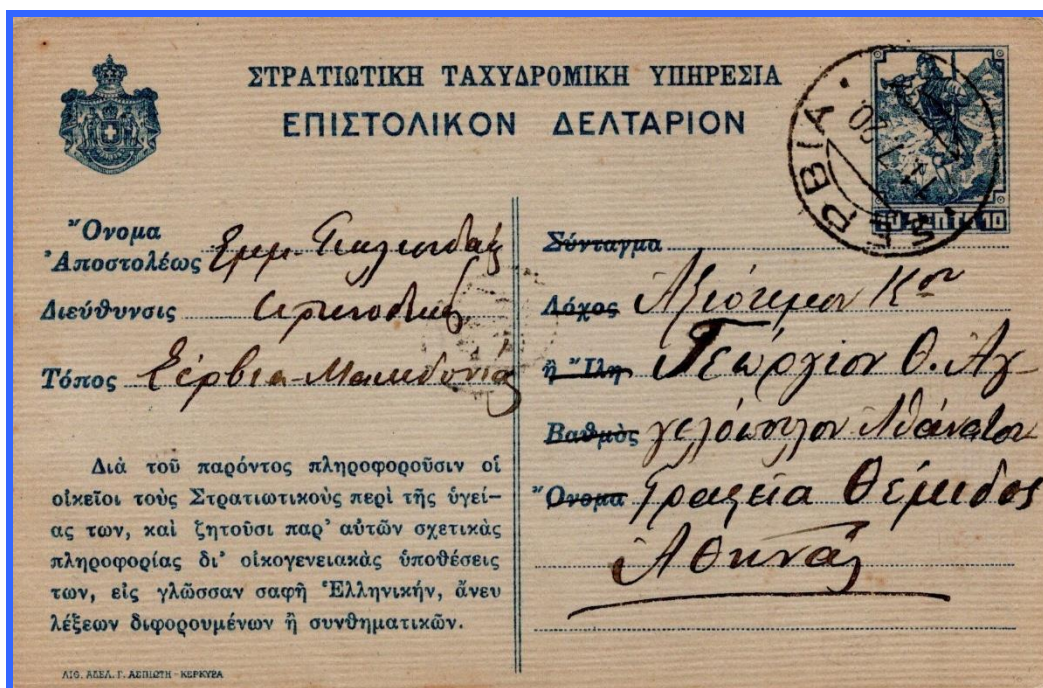 ΣΤΡΑΤΙΩΤΙΚΗ ΤΑΧΥΔΡΟΜΙΚΗ ΥΠΗΡΕΣΙΑ
ΕΠΙΣΤΟΛΙΚΟΝ ΔΕΛΤΑΡΙΟΝ
ΣΕΡΒΙΑ
10 ΛΕΠΤΑ 10
Ὄνομα
Ἀποστολέως Εμμ.
Διεύθυνσις
Τόπος Σέρβια Μακεδονίας
Διὰ τοῦ παρόντος πληροφοροῦσιν οἱ
οἰκεῖοι τοὺς Στρατιωτικοὺς περὶ τῆς ὑγεί-
ας των, καὶ ζητοῦσι παρ' αὐτῶν σχετικὰς
πληροφορίας δι' οἰκογενειακὰς ὑποθέσεις
των, εἰς γλῶσσαν σαφῆ Ἑλληνικήν, ἄνευ
λέξεων διφορουμένων ἢ συνθηματικῶν.
ΛΙΘ. ΑΔΕΛ. Γ. ΑΣΠΙΩΤΗ - ΚΕΡΚΥΡΑ
Σύνταγμα
Λόχος Αξιότιμον Κον
ἢ Ἴλη Γεώργιον Θ. Αγ-
Βαθμὸς γελόπουλον Αθάνατον
Ὄνομα Γραφεῖα Θέμιδος
Αθήνας